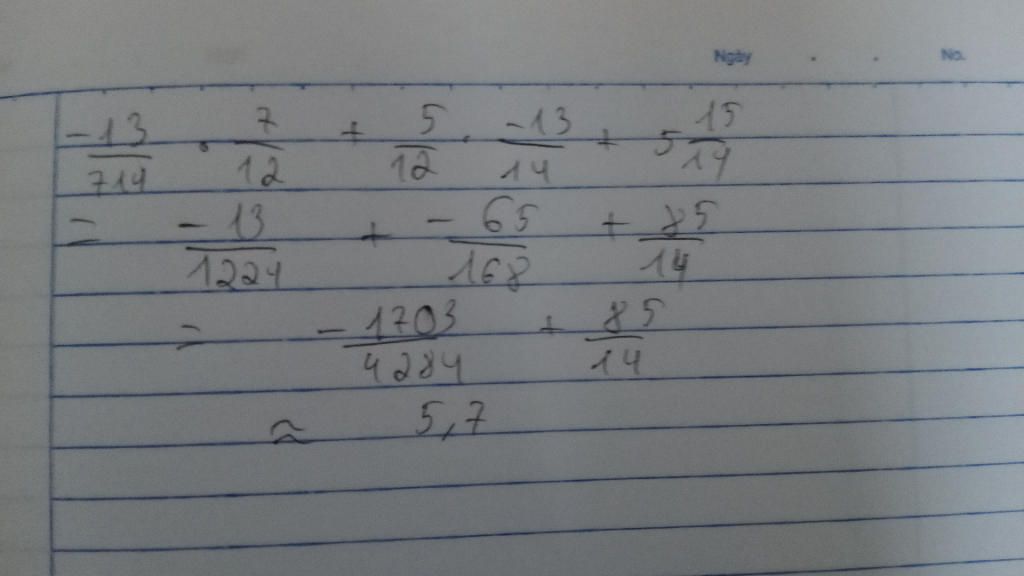 Ngày . . No.
-13/714 . 7/12 + 5/12 . -13/14 + 5 15/14
= -13/1224 + -65/168 + 85/14
= -1703/4284 + 85/14
≈ 5,7